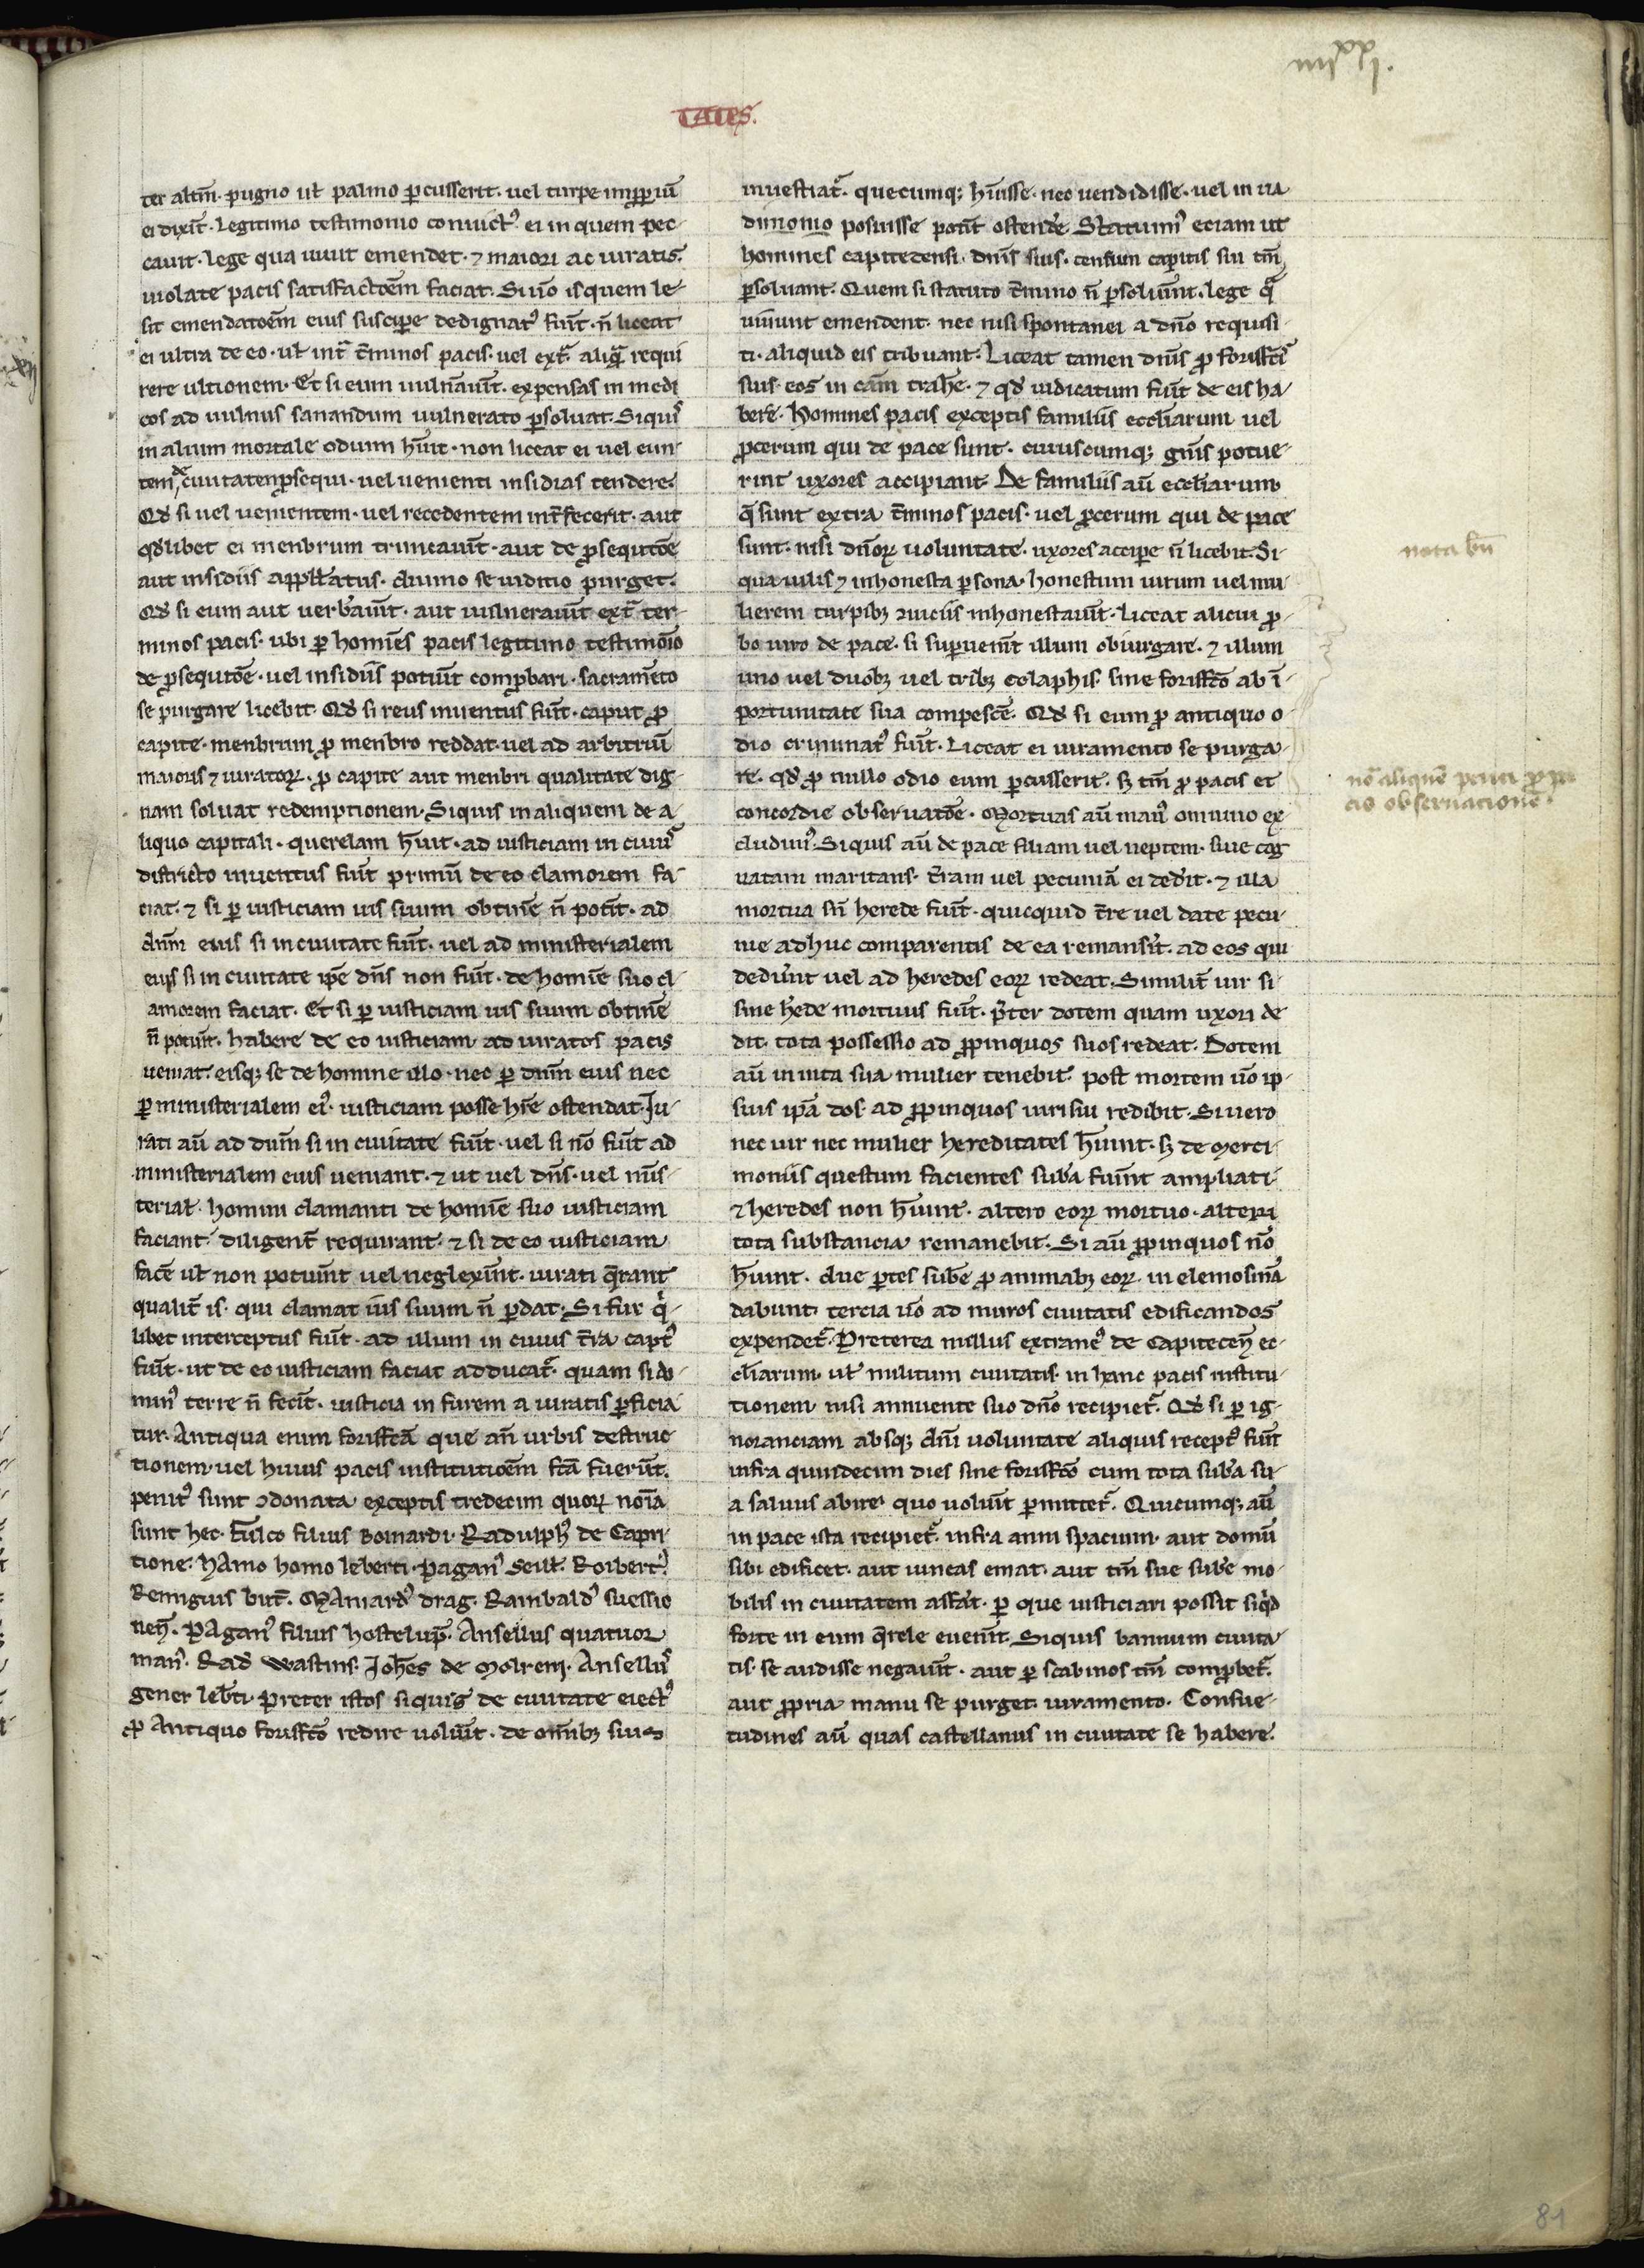 iiij xx j.
TATES.
ter altm̄. pugno ul̄ palmo ꝑcusserit. vel turpe imꝓpiū
ei dixit̄. Legitimo testimonio conuictꝰ ei in quem pec-
cauit. lege qua uiuit emendet. ⁊ maiori ac iuratis.
uiolate pacis satisfactōem̄ faciat. Si ūo is quem le-
sit emendatōem̄ eius suscipe dedignatꝰ fūit. n̄ liceat
ei ultra de eo. ul̄ int̄ t̄minos pacis. uel ext̄ aliq̄ requi
rere ultionem. Et si eum uuln̄auūit. expensas in medi
cos ad uulnus sanandum uulnerato ꝑsoluat. Siquis
in alium mortale odium h̄uit. non liceat ei uel eun-
tem de ciuitate ꝑsequi. uel uenienti insidias tendere.
Qd̄ si uel uenientem. uel recedentem int̄fecerit. aut
qd̄libet ei menbrum truncauīt. aut de ꝓsequutōe
aut insidiis appll̄atus. diuino se iuditio purget.
Qd̄ si eum aut verb̄auīt. aut uulnerauīt ext̄ ter-
minos pacis. ubi ꝑ homīes pacis legitimo testimōio
de ꝓsequtōe. uel insidiīs potuīt comꝓbari. sacram̄eto
se purgare licebit. Qd̄ si reus inuentus fūit. caput ꝓ
capite. menbrum ꝓ menbro reddat. uel ad arbitriū
maioris ⁊ iuratoꝝ. ꝓ capite aut menbri qualitate dig-
nam soluat redemptionem. Siquis in aliquem de a-
liquo capitali. querelam h̄uit. ad iusticiam in cuiꝰ
districto inuentus fūit primū de eo clamorem fa-
ciat. ⁊ si ꝑ iusticiam ius suum obtinē n̄ potit̄. ad
dnm̄ eius si in ciuitate fūit. vel ad ministerialem
eius si in ciuitate ipē dn̄s non fūit. de homīe suo cl-
amorem faciat. Et si ꝑ iusticiam ius suum obtinē
n̄ potuīt. habere de eo iusticiam. ad iuratos pacis
ueniat. eisqꝫ se de homine illo. nec ꝑ dnm̄ eius nec
ꝑ ministerialem eiꝰ. iusticiam posse hr̄e ostendat. Iu-
rati aū ad dnm̄ si in ciuitate fūit. vel si nō fūit ad
ministerialem eius ueniant. ⁊ ut vel dn̄s. vel mīs-
terial̄. homini clamanti de homīe suo iusticiam
faciant. diligent̄ requirant. ⁊ si de eo iusticiam
facē ul̄ non potuīnt vel neglexīnt. iurati q̄rant
qualit̄ is. qui clamat ius suum n̄ ꝑdat. Si fur q̇-
libet interceptus fūit. ad illum in cuius t̄ra captꝰ
fūit. ut de eo iusticiam faciat adducat̄. quam si do-
minꝰ terre n̄ fecīt. iusticia in furem a iuratis ꝑficia
tur. Antiqua enim forisfcā que an̄ urbis destruc
tionem. vel huius pacis institutiōem fcā fuerūt.
penitꝰ sunt ꝯdonata exceptis tredecim quoꝝ noīa
sunt hec. Fulco filius Bomardi. Radulphꝰ de Capri-
tione. hAmo homo leberti. Paganꝰ Seill̄. Roibertꝰ.
Remigius but̄. MAinardꝰ drag. Rainbaldꝰ suessio
nen̄. PAganꝰ filius hosteluꝑ. Ansellus quatuor
manꝰ. Rad̄ wastins. Johēs de Molrein. Ansellꝰ
gener leb̄ti. Preter istos siquis de ciuitate eiectꝰ
ꝓ Antiquo forisfcō redire uolūit. de om̄ibꝫ suis
inuestiat̄. quecumqꝫ h̄uisse. nec vendidisse. vel in ua
dimonio posuisse potit̄ ostendē. Statuimꝰ eciam ut
homines capitecensi. dn̄is suis. censum capitis sui tm̄
ꝑsoluant. Quem si statuto t̄mino n̄ ꝑsoluīnt. lege q̄
uiuunt emendent. nec nisi spontanei a dn̄o requisi-
ti. aliquid eis tribuant. Liceat tamen dn̄is ꝓ forisfcīs
suis eos in cām trahē. ⁊ qd̄ iudicatum fūit de eis ha-
bere. Homines pacis exceptis familiis eccl̄iarum vel
ꝓcerum qui de pace sunt. cuiuscumqꝫ gn̄is potue-
rint uxores accipiant. De familiis aū eccl̄iarum
q̄ sunt extra t̄minos pacis. vel ꝓcerum qui de pace
sunt. nisi dn̄oꝝ voluntate. uxores accipe n̄ licebit. Si-
qua uilis ⁊ inhonesta ꝑsona. honestum uirum vel mu-
lierem turpibꝫ ꝯuiciis inhonestauīt. liceat alicui ꝓ-
bo uiro de pace. si suꝑuenīt illum obiurgare. ⁊ illum
uno vel duobꝫ vel tribꝫ colaphis. sine forisfcō ab ī-
portunitate sua compescē. Qd̄ si eum ꝓ antiquo o-
dio criminatꝰ fūit. Liceat ei iuramento se purga-
re. qd̄ ꝓ nullo odio eum ꝑcusserit. sꝫ tm̄ ꝓ pacis et
concordie obseruatōe. Mortuas aū manꝰ omnino ex-
cludimꝰ. Siquis aū de pace filiam vel neptem. siue cog
natam maritans. t̄ram vel pecuniā ei dedit. ⁊ illa
mortua sn̄ herede fūit. quicquid t̄re vel date pecu-
nie adhuc comparentis de ea remansīt. ad eos qui
dedūnt vel ad heredes eoꝝ redeat. Similit̄ uir si-
sine h̄ede mortuus fūit. p̄ter dotem quam uxori de
dit. tota possessio ad ꝓpinquos suos redeat. Dotem
aū in uita sua mulier tenebit. post mortem ūo ip-
sius ipā dos. ad ꝓpinquos uiri sui redibit. Si uero
nec uir nec mulier hereditates h̄uīnt. sꝫ de merci-
moniis questum facientes sub̄a fuīnt ampliati.
⁊ heredes non h̄uīnt. altero eoꝝ mortuo. alteri
tota substancia remanebit. Si aū ꝓpinquos nō
h̄uīnt. due ꝑtes sub̄e ꝓ animabꝫ eoꝝ. in elemosinā
dabunt. tercia ūo ad muros ciuitatis edificandos
expendet̄. Preterea nullus extraneꝰ de Capitecen̄ ec-
cl̄iarum. ul̄ militum ciuitatis. in hanc pacis institu-
tionem nisi annuente suo dn̄o recipiet̄. Qd̄ si ꝑ ig-
noranciam absqꝫ dn̄i voluntate aliquis receptꝰ fūit
infra quindecim dies sine forisfcō cum tota sub̄a su-
a saluus abire. quo uolūit ꝑmittet̄. Quicumqꝫ aū
in pace ista recipiet̄. infra anni spacium. aut domū
sibi edificet. aut uineas emat. aut tm̄ sue sub̄e mo-
bilis in ciuitatem affat̄. ꝑ que iusticiari possit siq̇d
forte in eum q̄rele euenīt. Siquis bannum ciuita-
tis. se audisse negauīt. aut ꝑ scabinos tm̄ comꝓbet̄.
aut ꝓpria manu se purget iuramento. Consue-
tudines aū quas castellanus in ciuitate se habere.
nota bn̄
nō aliquē
cis obseruacione.
81